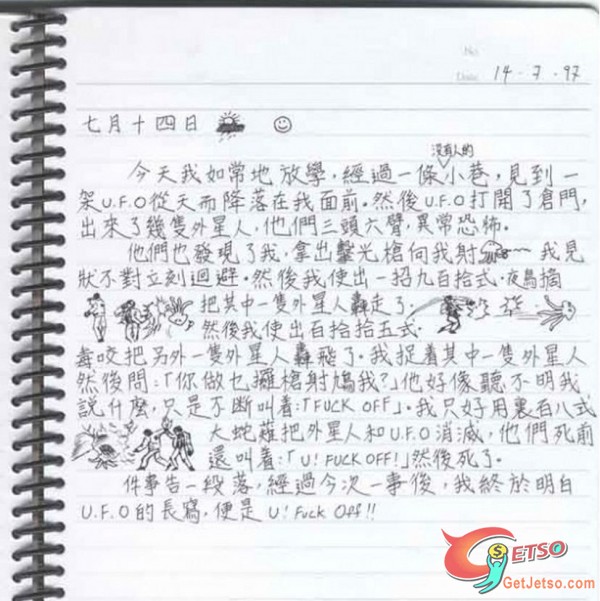 No.
Date 14·7·97
七月十四日
沒有人的
今天我如常地放學，經過一條小巷，見到一
架U.F.O從天而降落在我面前。然後U.F.O打開了倉門，
出來了幾隻外星人，他們三頭六臂，異常恐怖。
他們也發現了我，拿出擊光槍向我射 我見
狀不對立刻迴避。然後我使出一招九百拾式·夜鳥摘
把其中一隻外星人轟走了。
然後我使出百拾拾五式·
毒咬把另外一隻外星人轟飛了。我捉着其中一隻外星人
然後問：「你做乜攞槍射鳩我?」他好像聽不明我
說什麼，只是不斷叫着：「FUCK OFF」。我只好用裏百八式
大蛇薙把外星人和U.F.O消滅，他們死前
還叫着：「U! FUCK OFF!」然後死了。
件事告一段落，經過今次一事後，我終於明白
U.F.O的長寫，便是U! Fuck Off!!
GETSO
$
GetJetso.com